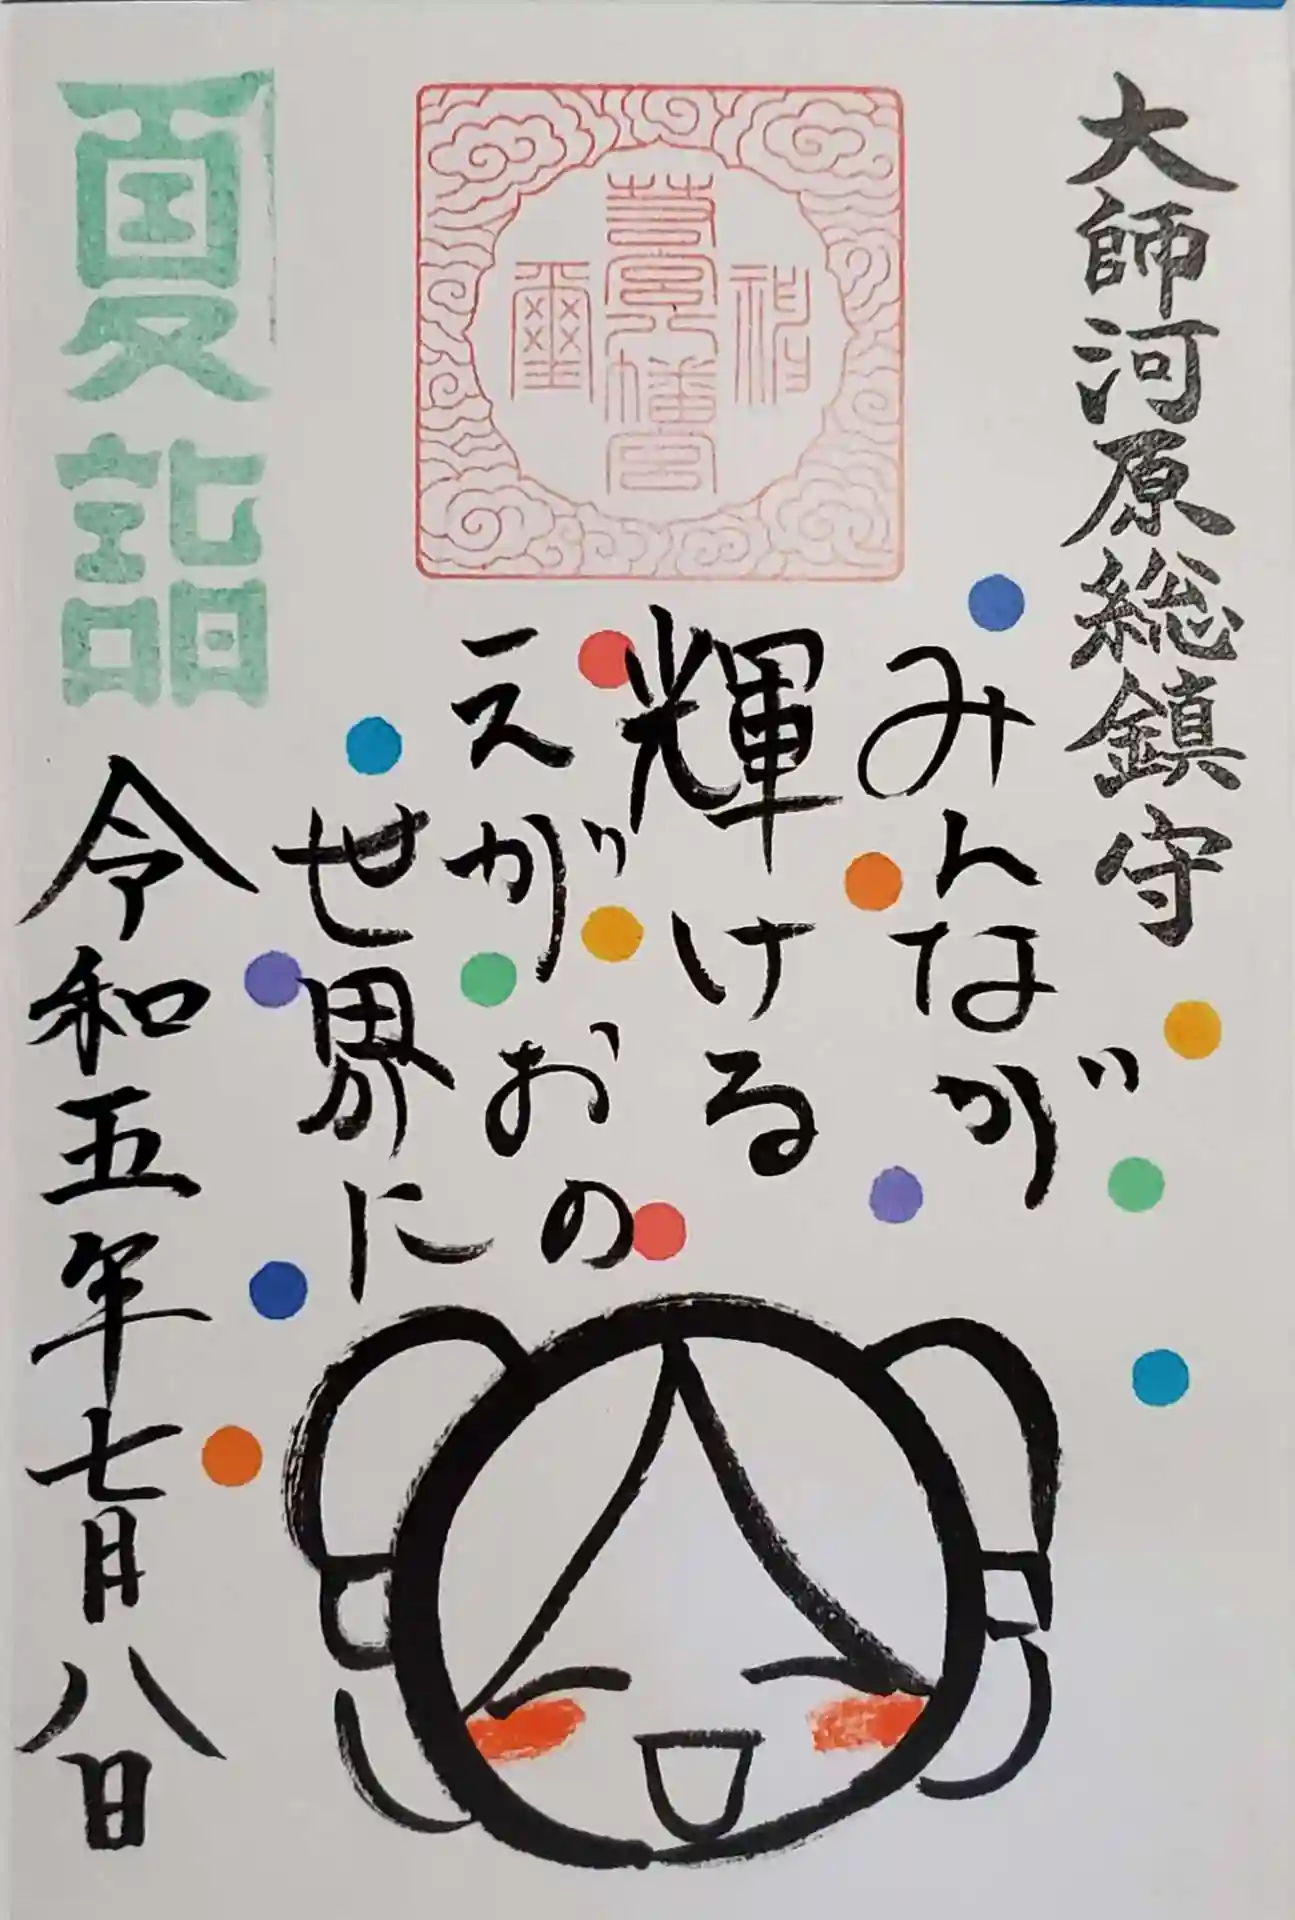 大師河原総鎮守
若宮八幡宮
神
璽
みんなが
輝ける
えがおの
世界に
夏詣
令和五年七月八日